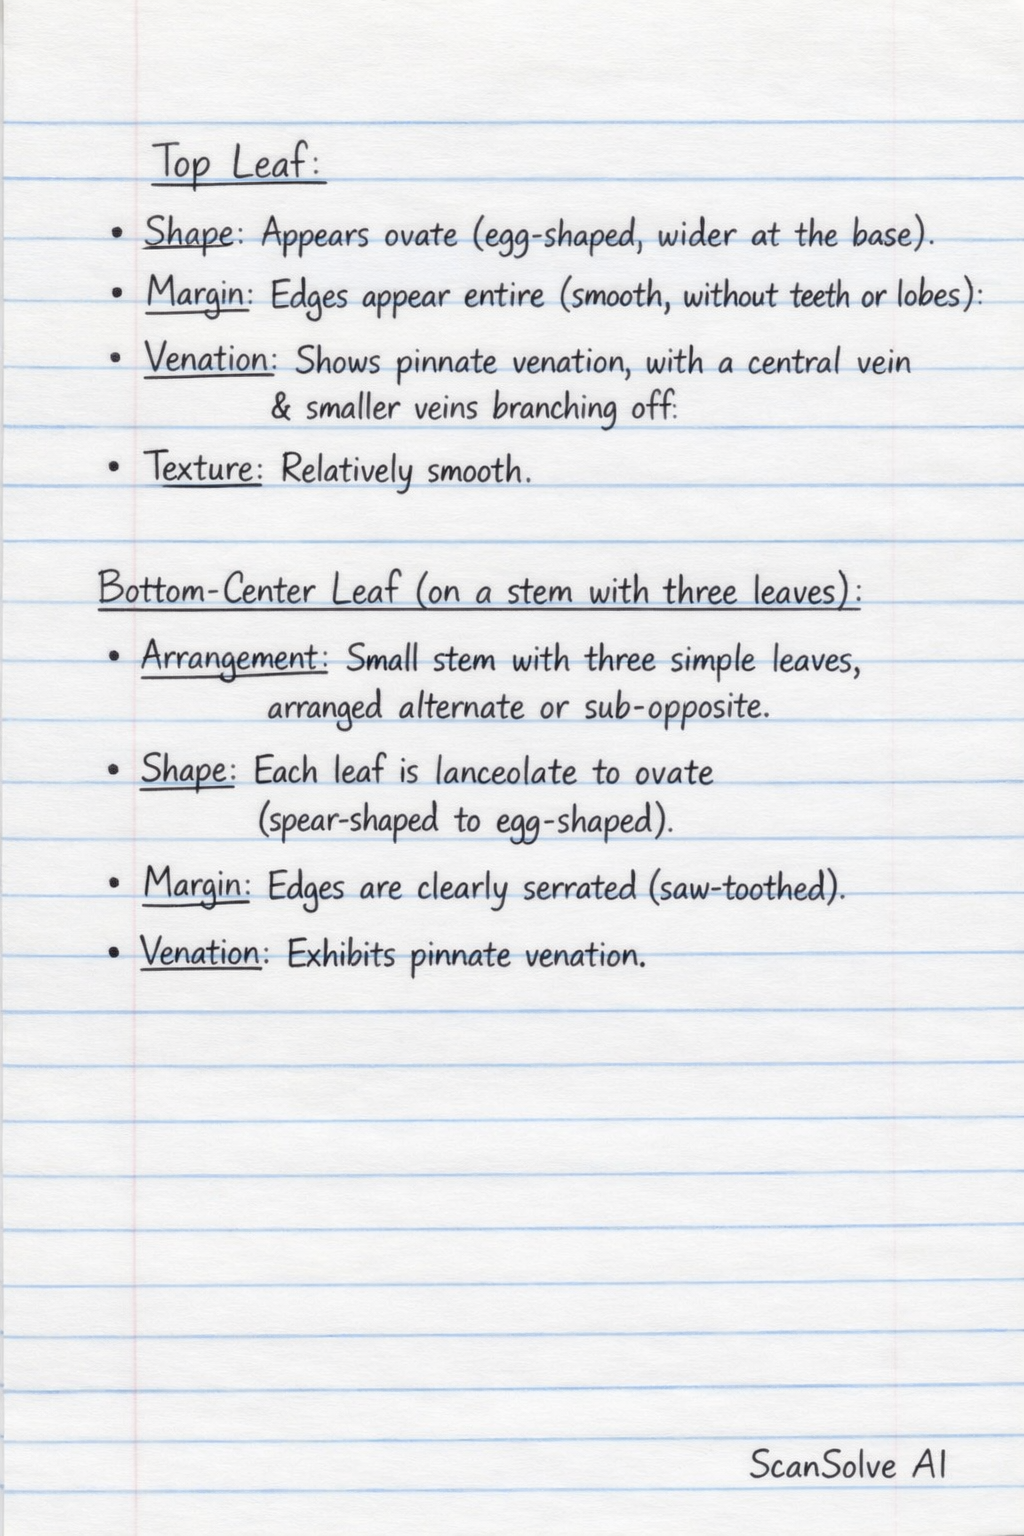 Top Leaf:
• Shape: Appears ovate (egg-shaped, wider at the base).
• Margin: Edges appear entire (smooth, without teeth or lobes):
• Venation: Shows pinnate venation, with a central vein
& smaller veins branching off:
• Texture: Relatively smooth.
Bottom-Center Leaf (on a stem with three leaves):
• Arrangement: Small stem with three simple leaves,
arranged alternate or sub-opposite.
• Shape: Each leaf is lanceolate to ovate
(spear-shaped to egg-shaped).
• Margin: Edges are clearly serrated (saw-toothed).
• Venation: Exhibits pinnate venation.
ScanSolve AI